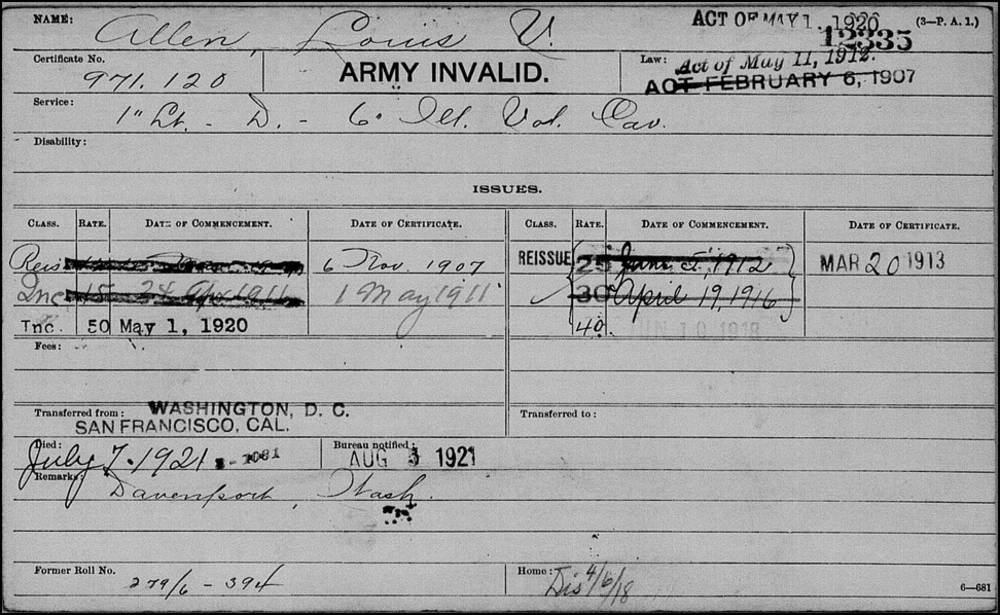 NAME: Allen, Louis V. ACT OF MAY 1, 1920 (3—P. A. 1.)
12335
Certificate No. 971.120 ARMY INVALID. Law: Act of May 11, 1912.
ACT FEBRUARY 6, 1907
Service: 1" Lt. - D. - 6" Ill. Vol. Cav.
Disability:
ISSUES.
CLASS. RATE. DATE OF COMMENCEMENT. DATE OF CERTIFICATE. CLASS. RATE. DATE OF COMMENCEMENT. DATE OF CERTIFICATE.
Reis 6 Nov. 1907 REISSUE 25 June 5, 1912 MAR 20 1913
Inc 15 24 Apr 1911 1 May 1911 30 April 19, 1916
Inc. 50 May 1, 1920 40. JUN 10 1918
Fees:
Transferred from: WASHINGTON, D. C. Transferred to:
SAN FRANCISCO, CAL.
Died: July 7. 1921 3-1081 Bureau notified: AUG 3 1921
Remarks: Davenport, Wash.
Former Roll No. 279/6 - 394 Home: Dis 4/6/18 6—681